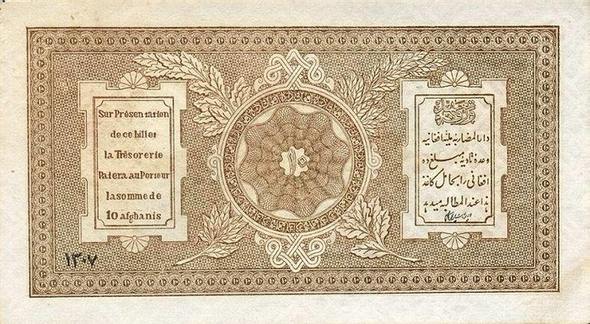 Sur Présentation
de ce billet
la Trésorerie
Paiera au Porteur
la somme de
10 afghanis
۱۰
دارالمضاربه ملیهٔ افغانیه
وعدهٔ تادیه مبلغ ده
افغانی را بحامل کاغذ
هذا عند المطالبه میدهد
۱۳۰۷